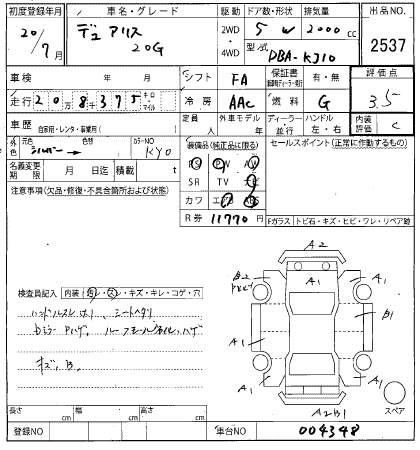 初度登録年月 車名・グレード 駆動 ドア数・形状 排気量 出品NO.
20/7月 デュアリス 20G 2WD・4WD 5 W 2000 cc 2537
型式 DBA-KJ10
車検 年 月 シフト FA 保証書 有・無 評価点
走行 20万8千375 キロ・マイル 冷房 AAC 燃料 G 3.5
車歴 自家用・レンタ・事業用( ) 定員 人 外車モデル 年 ディーラー・並行 ハンドル 左・右 内装評価 C
外色 元色 シルバー 色替 カラーNO KY0 装備品(純正品に限る) セールスポイント(正常に動作するもの)
PS PW AW
名義変更期限 月 日迄 積載 t SR TV
注意事項(欠品・修復・不具合箇所および状態) カワ エアB ABS
R券 11770 円
Fガラス トビ石・キズ・ヒビ・ワレ・リペア跡
A2
B2 A1 A1
B1
検査員記入 内装(汚レ・スレ・キズ・キレ・コゲ・穴
ハンドルスレ シートヘタリ
A1
キズ、B.
A1 A1
A2B1
スペア
長さ cm 幅 cm 高さ cm
登録NO 車台NO 004348